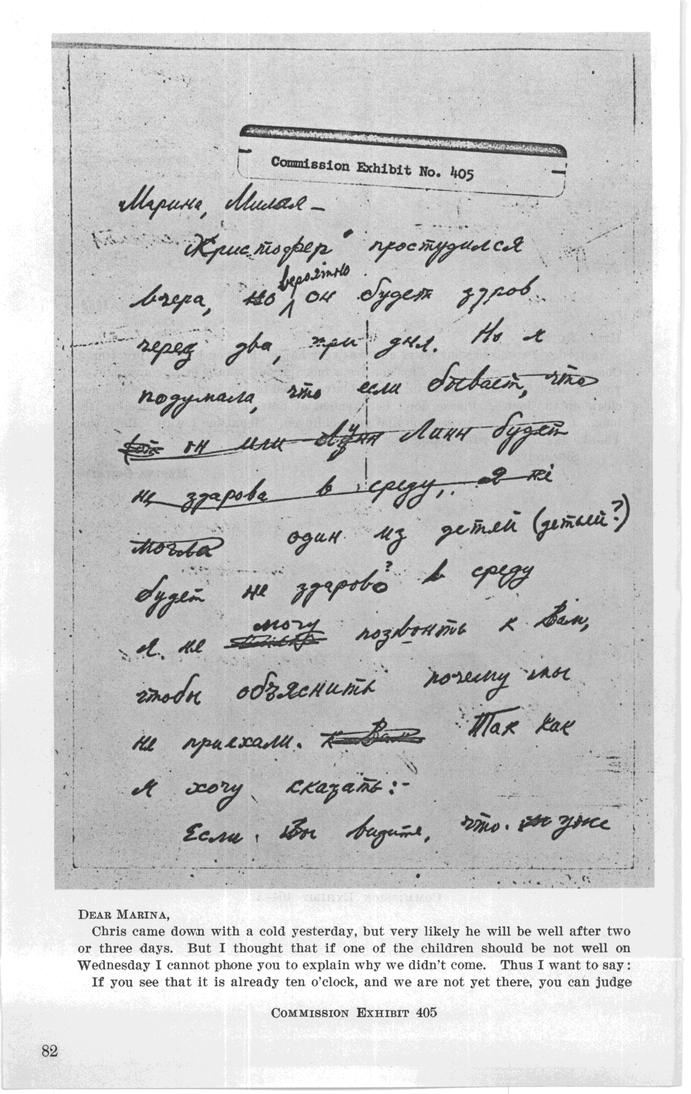 Commission Exhibit No. 405
Марина, Милая –
"Христофер" простудился
вчера, но вероятно он будет здров
через два, три дня. Но я
подумала, что если бывает, что
он или Линн будет
не здарова в среду, Я не
могла один из детяй (детьей?)
будет не здарово? в среду
я не могу позвонить к Вам,
чтобы объяснить почему мы
не приехали. к Вам Так как
я хочу сказать:-
Если Вы видите, что уже
DEAR MARINA,
Chris came down with a cold yesterday, but very likely he will be well after two
or three days. But I thought that if one of the children should be not well on
Wednesday I cannot phone you to explain why we didn't come. Thus I want to say:
If you see that it is already ten o'clock, and we are not yet there, you can judge
COMMISSION EXHIBIT 405
82